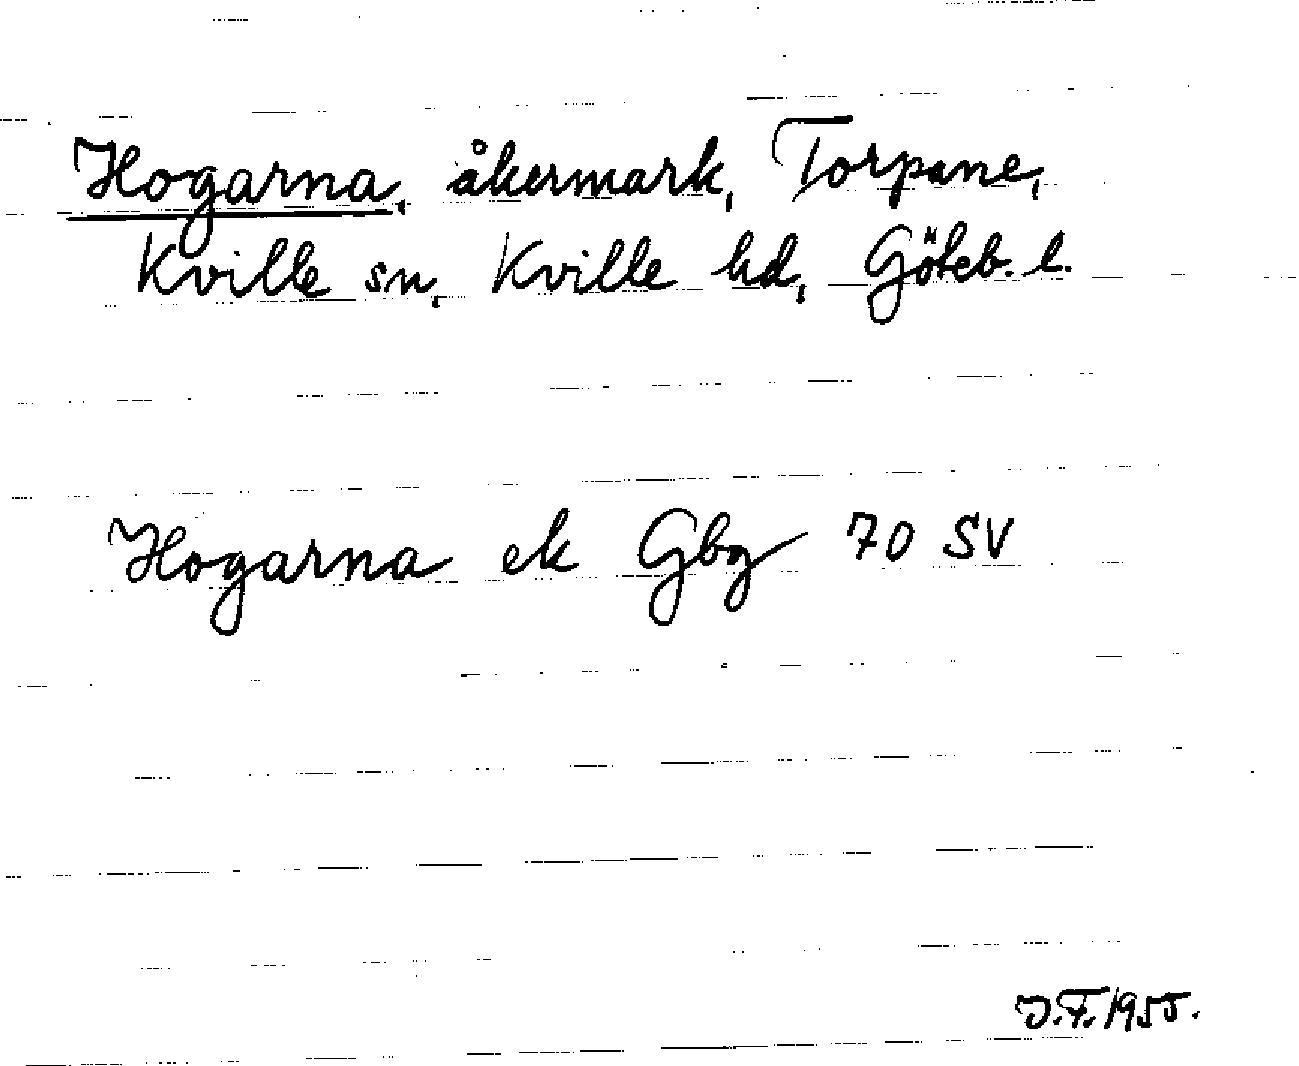 Hogarna, åkermark, Torpane,
Kville sn, Kville hd, Göteb. l.
Hogarna ek Gbg 70 SV
J.F. 1955.